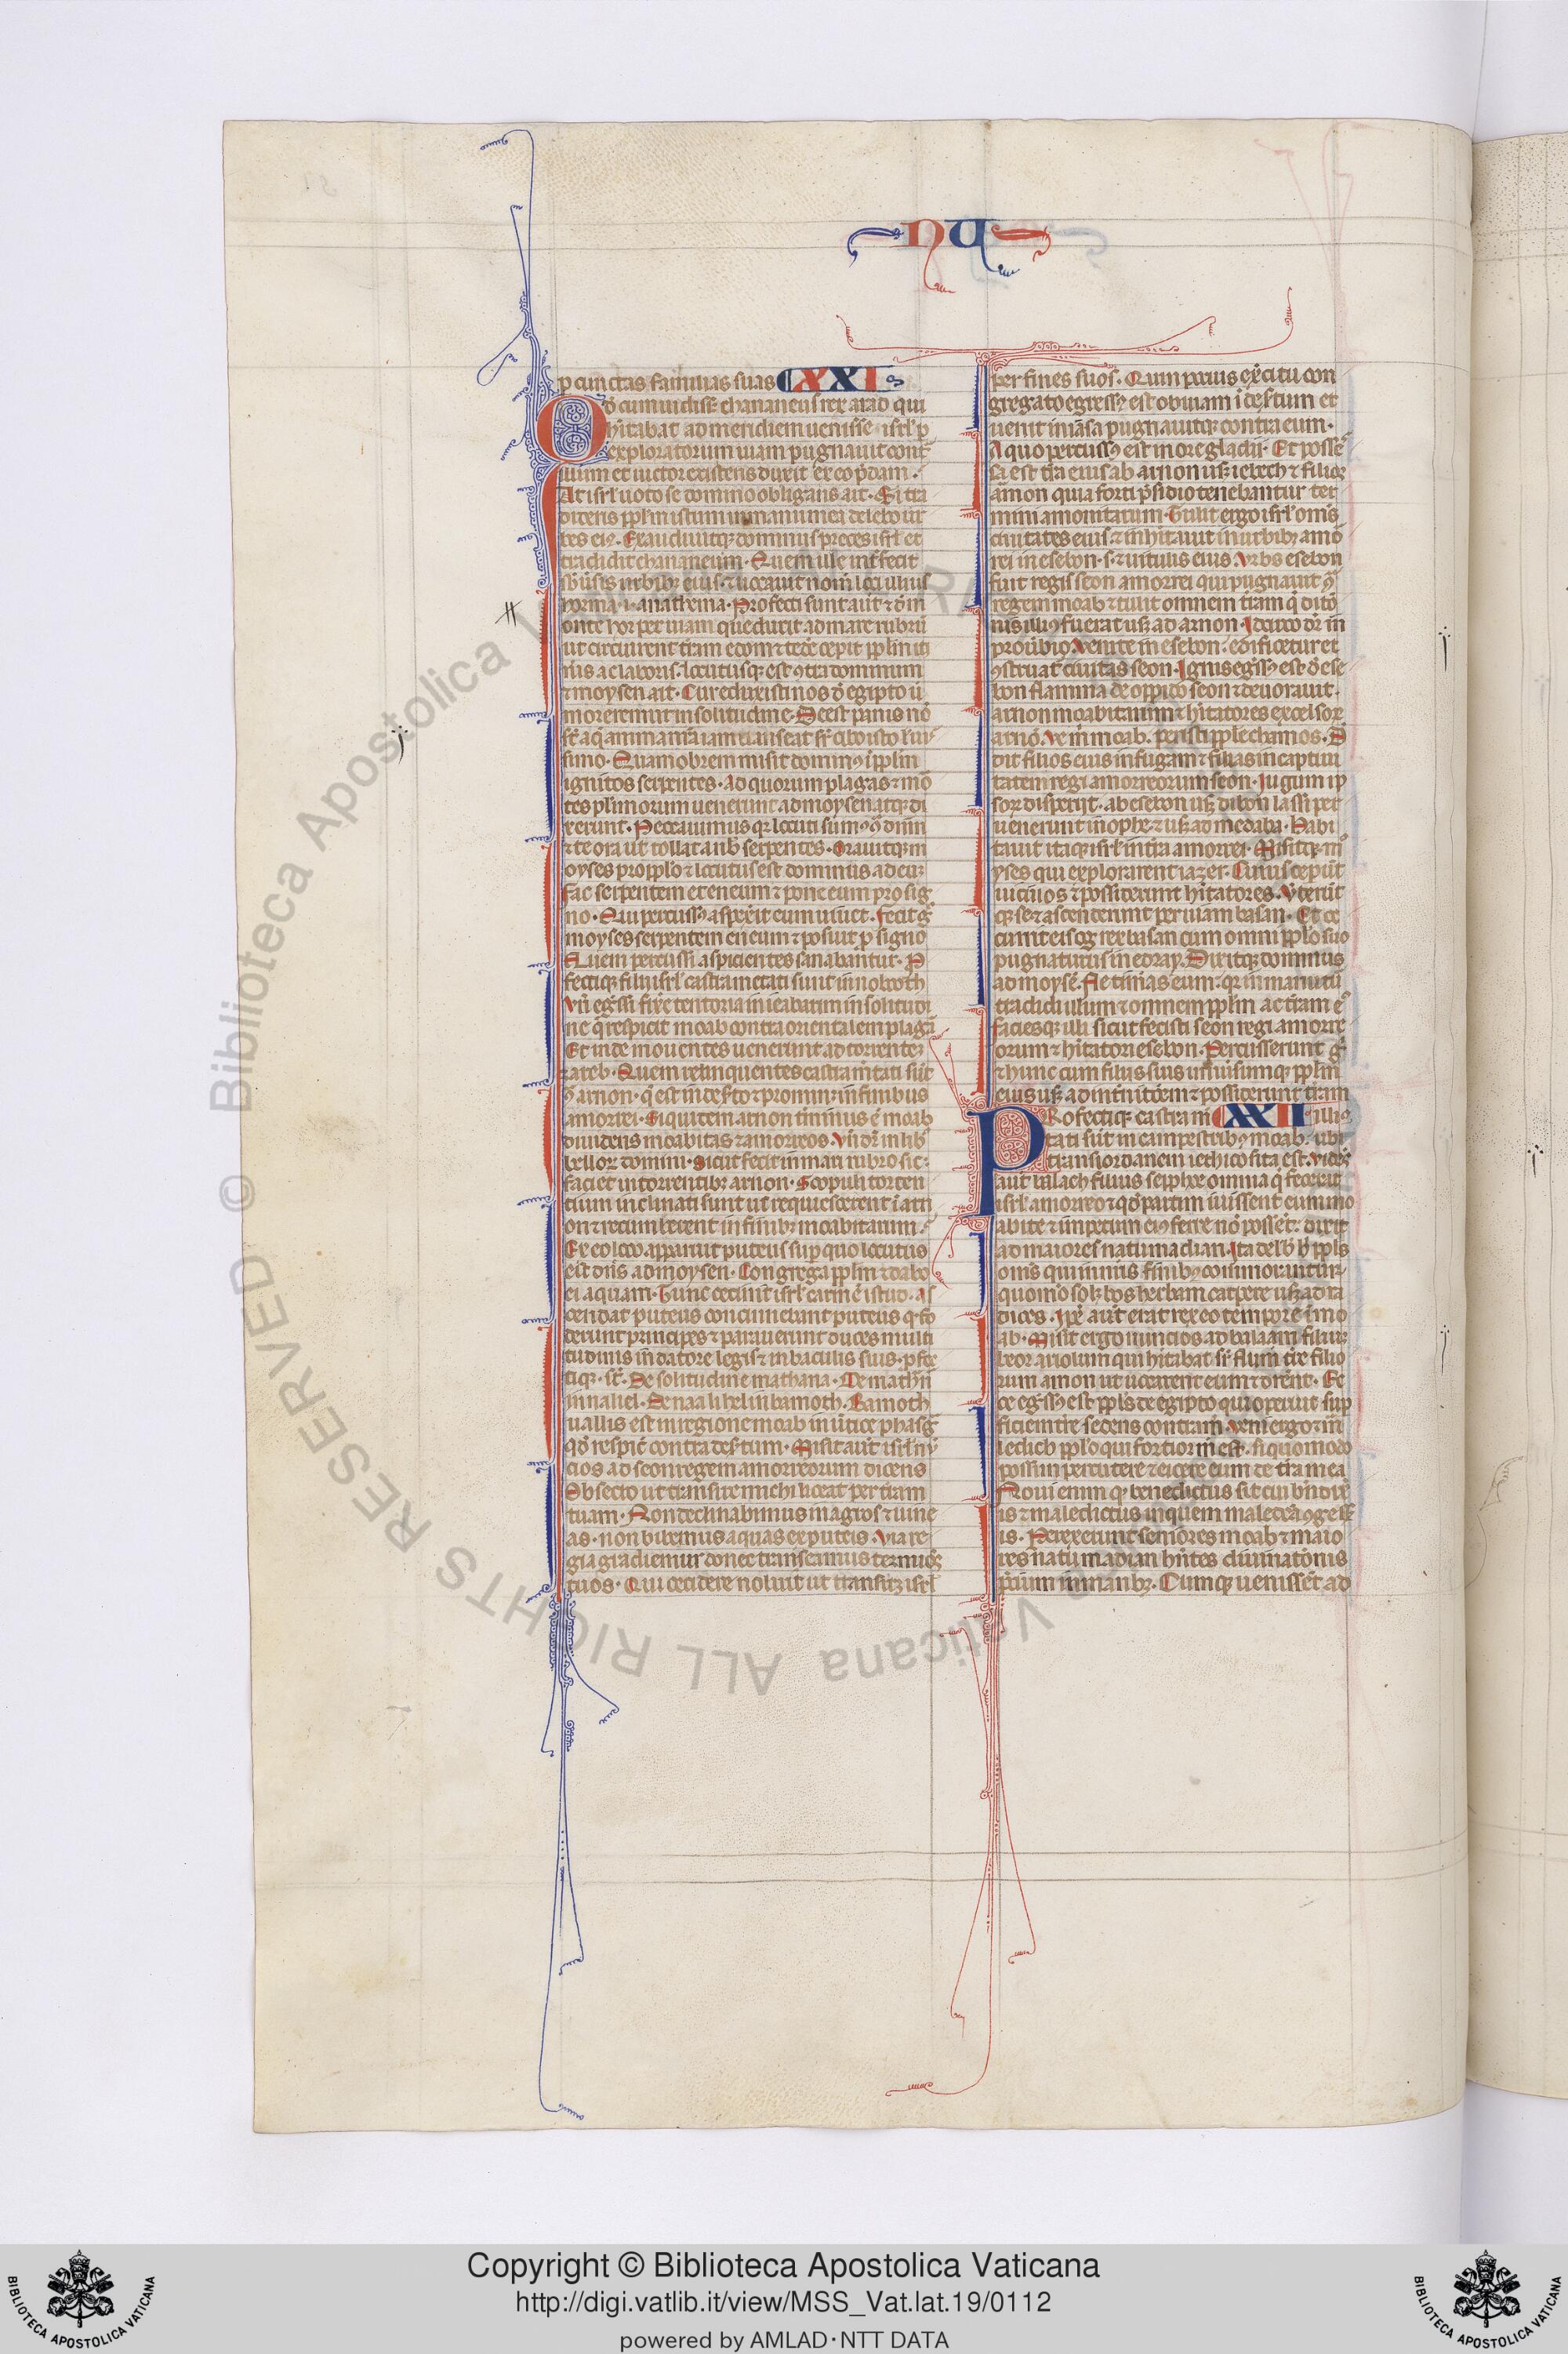 NU
ꝑ cunctas familias suas XXI
Qd̕ cum audisset chananeus rex arad qui
hitabat ad meridiem uenisse isrl' ꝑ
exploratorum uiam pugnauit cont̕
illum et uictor existens duxit ex eo p̕dam.
At isrl' uoto se domino obligans ait. Si tra
dideris ppl'm istum in manu mea delebo ur
bes eiꝰ. Exaudiuitqꝫ dominus preces isrl' et
tradidit chananeum. Quem ille int̕fecit
sb̕u̕sis urbibꝫ eius ⁊ uocauit nom̄ loci illius
horma .i. anathema. Profecti sunt aut̄ ⁊ d̕ m
onte hor per uiam que ducit ad mare rubrū
ut circuirent t̕ram edom ⁊ tede̕ cepit ppl'm iti
n̕is ac laboris. locutusqꝫ est ꝯtra dominum
⁊ moysen ait. Cur eduxisti nos d̕ egipto ut
moreremur in solitudine. Deest panis nō
st̄ aq̄ anima n̄ra iam nauseat sr̄ cibo isto leuis
simo. Quamobrem misit dominꝰ ī ppl'm
ignitos serpentes. Ad quorum plagas ⁊ mor
tes pl'imorum uenerunt ad moysen atqꝫ di
xerunt. Peccauimus qꝛ locuti sumꝰ ꝯ̕ dn̄m
⁊ te ora ut tollat a nob̕ serpentes. Orauitqꝫ m
oyses pro ppl'o ⁊ locutus est dominus ad eū:
fac serpentem eneum ⁊ pone eum pro sig
no. Qui percussꝰ aspexe̕it eum uiuet. Fecit g̕
moyses serpentem eneum ⁊ posuit ꝓ signo
Quem percussi aspicientes sanabantur. P
fectiqꝫ filii isrl' castrametati sunt in oboth
Vn̄ eg̕ssi fixe̕ tentoria in ieabarim in solitudi
ne q̄ respicit moab contra orientalem plagā
Et inde mouentes uenerunt ad torrentem
zareb. Quem relinquentes castram̕tati sūt
ꝯ̕ arnon. q̄ est in deserto ⁊ prominꝫ in finibus
amorrei. Siquidem arnon t̕minus ē moab
diuidens moabitas ⁊ amorreos. Vn̄ d̕r in lib̕
bellorum domini. Sicut fecit in mari rubro sic
faciet in torrentibꝫ arnon. Scopuli torren
tium inclinati sunt ut requiescerent ī arn
on ⁊ recumberent in finibꝫ moabitarum.
Ex eo loco apparuit puteus sup quo locutus
est dn̄s ad moysen. Congrega ppl'm ⁊ dabo
ei aquam. Tunc cecinit isrl' carm̄ istud. As
cendat puteus concinebant puteus q̄ fo
derunt principes ⁊ parauerunt duces multi
tudinis in datore legis ⁊ in baculis suis. ꝓfec
tiqꝫ st̄. De solitudine mathana. De mathan̄
in naliel. De naalihel in bamoth. Bamoth
uallis est in regione moab in u̕tice phasg̕
qd̕ respic̄ contra desertum. Misit aut̄ isrl' nū
cios ad seon regem amorreorum dicens
Obsecro ut transire michi liceat per t̕ram
tuam. Non declinabimus in agros ⁊ uine
as. non bibemus aquas ex puteis. Via re
gia gradiemur donec transeamus terminos
tuos. Qui cedere noluit ut transiret isrl'
per fines suos. Quin pocius exe̕citu con
gregato egressꝰ est obuiam ī desertum et
uenit in iasa pugnauitqꝫ contra eum.
A quo percussꝰ est in ore gladii. Et posses
sa est t̕ra eius ab arnon usqꝫ iebech ⁊ filios
amon quia forti p̕sidio tenebantur ter
mini amonitarum. Tulit ergo isrl' om̄s
ciuitates eius. ⁊ inhitauit in urbibꝫ amor
rei in esebon .s. ⁊ uiculis eius. Vrbs esebon
fuit regis seon amorrei qui pugnauit ꝯ̕
regem moab ⁊ tulit omnem t̕ram q̄ dicio
nis illiꝰ fuerat usqꝫ ad arnon. Idcirco d̕r in
prou̕bio. Venite in esebon. edificetur et
ꝯstruat̕ ciuitas seon. Ignis eg̕ssꝰ est d̕ ese
bon flamma de oppido seon ⁊ deuorauit.
ar̄ moabitarum ⁊ hitatores excelsorum
arnō. Ve tibi moab. peristi pple chamos. D
dit filios eius in fugam ⁊ filias in captiui
tatem regi amorreorum seon. Iugum ip
sorum disperiit. ab esebon usqꝫ dibon lassi per
uenerunt in ophe. ⁊ usqꝫ ad medaba. Habi
tauit itaqꝫ isrl' in t̕ra amorrei. Misitqꝫ mo
yses qui explorarent iazer. Cuius cepe̕ūt
uiculos ⁊ possederunt hitatores. Verterūt
qꝫ se ⁊ ascenderunt per uiam basan. Et oc
currit eis og rex basan cum omni ppl'o suo
pugnaturus in edray. Dixitqꝫ dominus
ad moysē. Ne timeas eum: qꝛ in manu tua
tradidi illum ⁊ omnem ppl'm ac t̕ram eiꝰ
faciesqꝫ illi sicut fecisti seon regi amorre
orum ⁊ hitatori esebon. Percusserunt g̕
⁊ hunc cum filiis suis uniuersumqꝫ ppl'm
eius usqꝫ ad internitōem ⁊ possederunt t̕ram
Profectiqꝫ castram̕ XXII illius
tati sūt in campestribꝫ moab. ubi
trans iordanem iethico sita est. Vidēs
aut̄ balach filius sephor omnia q̄ fecerat
isrl' amorreo ⁊ qd̕ pertimuissent eum mo
abite ⁊ impetum eiꝰ ferre nō possēt. dixit
ad maiores natu madian. Ita delebit hic ppl's
om̄s qui in n̄ris finibꝫ commorantur
quomō solꝫ bos herbam carpere usqꝫ ad ra
dices. Ip̄e aut̄ erat rex eo tempore ī mo
ab. Misit ergo nuncios ad balaam filium
beor ariolum qui hitabat sr̄ flum̄ t̕re filio
rum amon ut uocarent eum ⁊ dicerent. Ec
ce eg̕ssꝰ est ppl's de egipto qui operuit sup
ficiem t̕re sedens contra me. Veni ergo ⁊ m
ledic huic ppl'o qui fortior me est. si quomodo
possim percutere ⁊ eicere eum de t̕ra mea
Noui enim qꝛ benedictus sit cui bn̄dixe̕
is ⁊ maledictus in quem maledcā ꝯgesse̕
is. Perexerunt seniores moab ⁊ maio
res natu madian hn̄tes diuinatōnis
p̕cium in manibꝫ. Cumqꝫ uenissēt ad
© Biblioteca Apostolica Vaticana ALL RIGHTS RESERVED
Copyright © Biblioteca Apostolica Vaticana
http://digi.vatlib.it/view/MSS_Vat.lat.19/0112
powered by AMLAD·NTT DATA
BIBLIOTECA APOSTOLICA VATICANA
BIBLIOTECA APOSTOLICA VATICANA